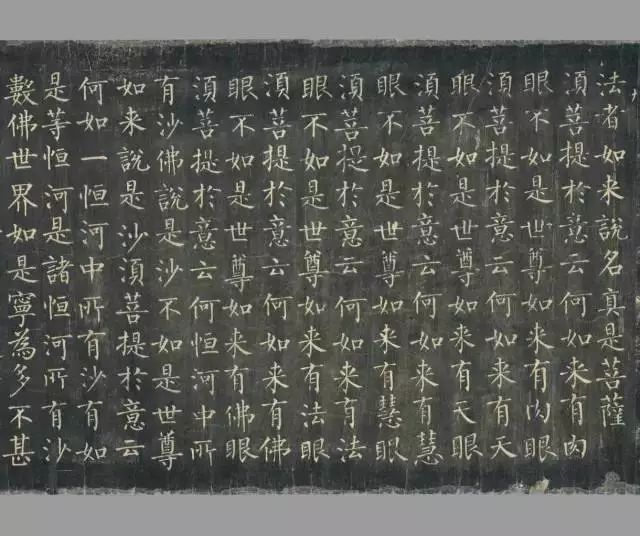 法者如来說名真是菩薩
須菩提於意云何如来有肉
眼不如是世尊如来有肉眼
須菩提於意云何如来有天
眼不如是世尊如来有天眼
須菩提於意云何如来有慧
眼不如是世尊如来有慧眼
須菩提於意云何如来有法
眼不如是世尊如来有法眼
須菩提於意云何如来有佛
眼不如是世尊如来有佛眼
須菩提於意云何恒河中所
有沙佛說是沙不如是世尊
如来說是沙須菩提於意云
何如一恒河中所有沙有如
是等恒河是諸恒河所有沙
數佛世界如是寧為多不甚